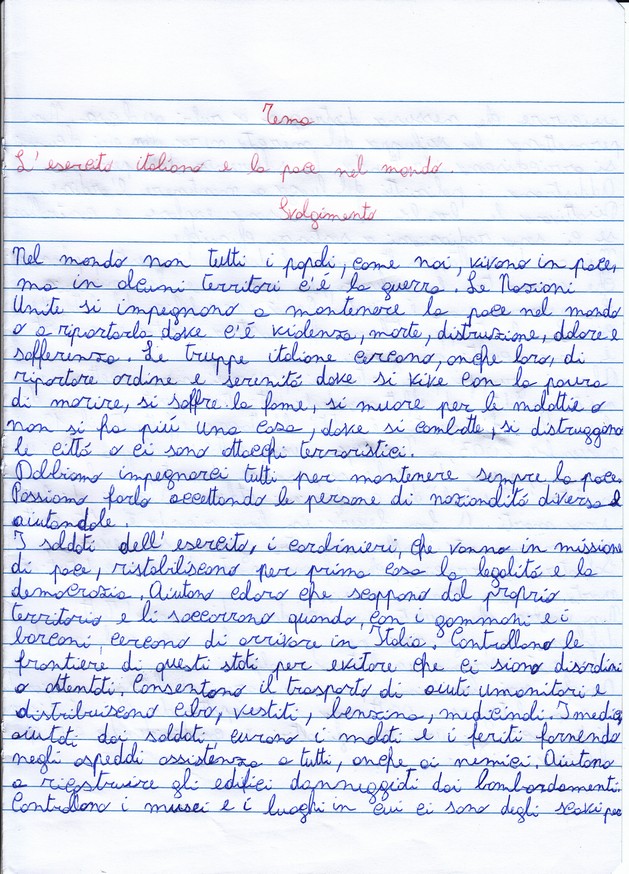 Tema
L'esercito italiano e la pace nel mondo.
Svolgimento
Nel mondo non tutti i popoli, come noi, vivono in pace,
ma in alcuni territori c'é la guerra. Le Nazioni
Unite si impegnano a mantenere la pace nel mondo
o a riportarla dove c'é violenza, morte, distruzione, dolore e
sofferenza. Le truppe italiane cercano, anche loro, di
riportare ordine e serenitá dove si vive con la paura
di morire, si soffre la fame, si muore per le malattie o
non si ha piú una casa, dove si combatte, si distruggono
le cittá o ci sono attacchi terroristici.
Dobbiamo impegnarci tutti per mantenere sempre la pace.
Possiamo farlo accettando le persone di nazionalitá diversa e
aiutandole.
I soldati dell'esercito, i cardinieri, che vanno in missione
di pace, ristabiliscono per prima cosa la legalitá e la
democrazia. Aiutano coloro che scappano dal proprio
territorio e li soccorrono quando, con i gommoni e i
barconi, cercano di arrivare in Italia. Controllano le
frontiere di questi stati per evitare che ci siano disordini
o attentati. Consentono il trasporto di aiuti umanitari e
distribuiscono cibo, vestiti, benzina, medicinali. I medici,
aiutati dai soldati, curano i malati e i feriti fornendo
negli ospedali assistenza a tutti, anche ai nemici. Aiutano
a ricostruire gli edifici danneggiati dai bombardamenti.
Controllano i musei e i luoghi in cui ci sono degli scavi per